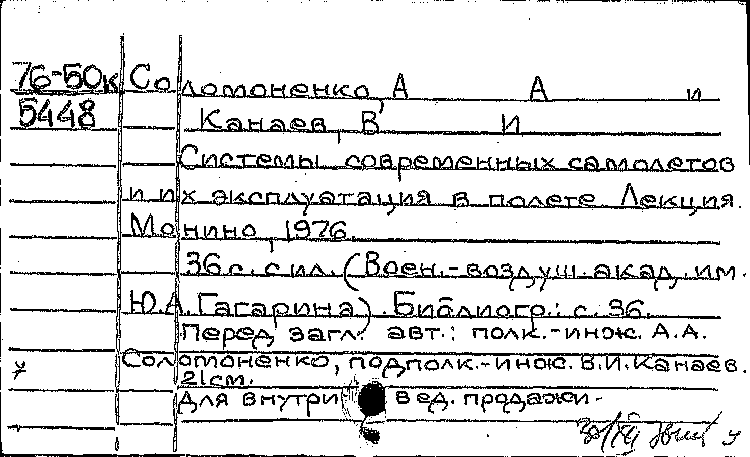 76-50к Соломоненко, А А и
5448 Канаев, В И
Системы современных самолетов
и их эксплуатация в полете. Лекция.
Монино, 1976.
36 с. с ил. (Воен.-воздуш. акад. им.
Ю.А. Гагарина). Библиогр.: с. 36.
Перед загл. авт.: полк.-инж. А.А.
Соломоненко, подполк.-инж. В.И. Канаев.
21 см.
Для внутри вед. продажи.